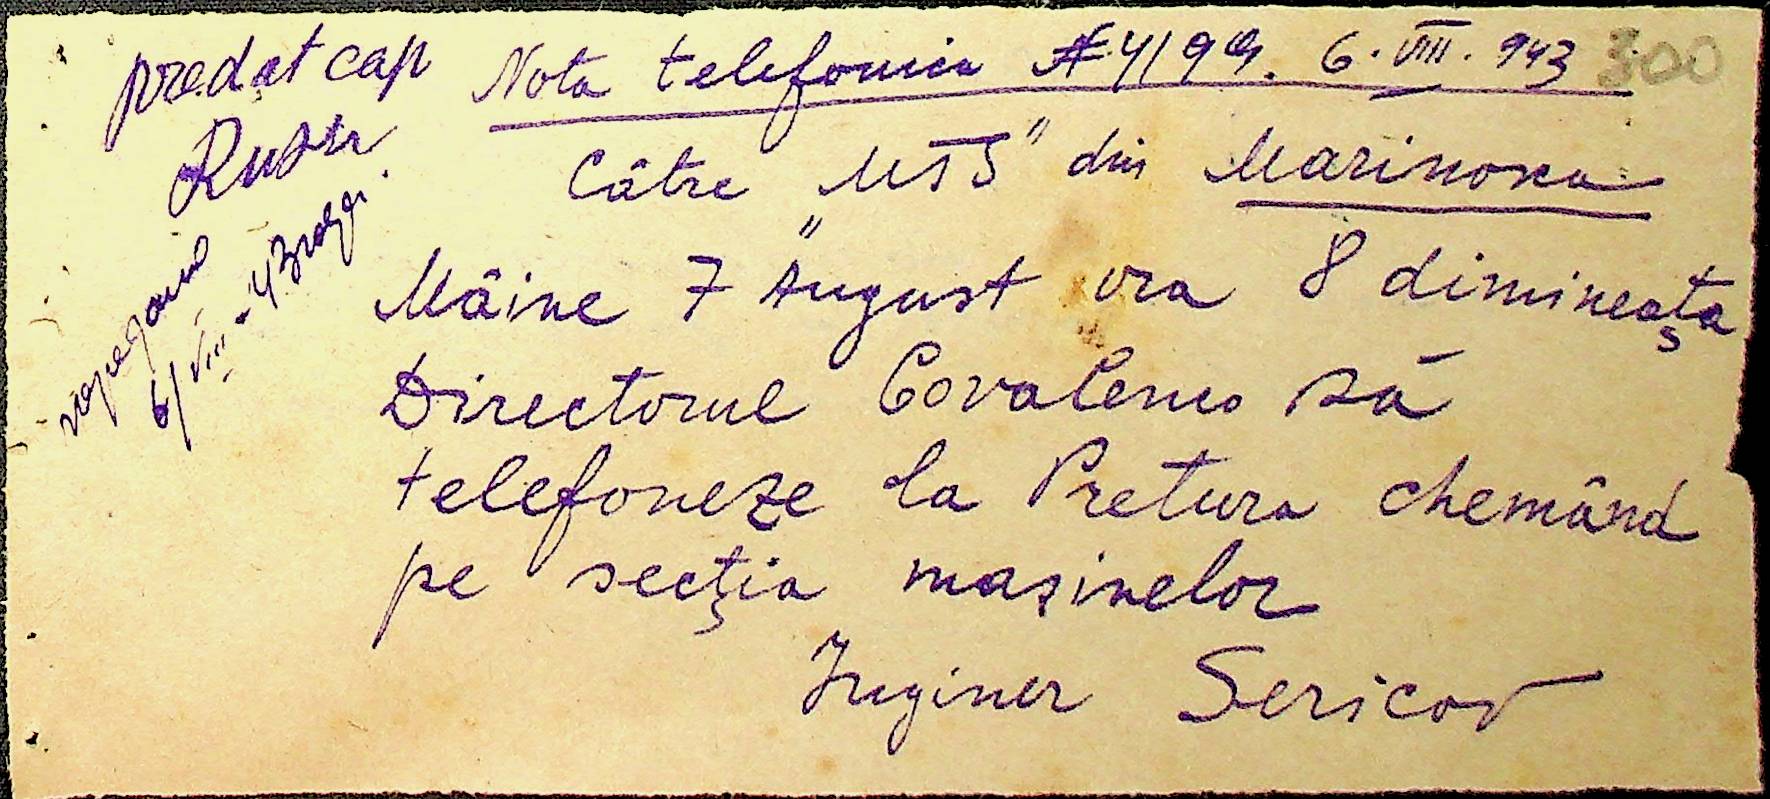 predat cap
Rusu
6/VIII
Nota telefonica 6.VIII.943
300
Către „MTS" din Marinovca
Mâine 7 August ora 8 dimineața
Directorul Covalenco să
telefoneze la Pretura chemând
pe secția mașinelor
Inginer Sericov